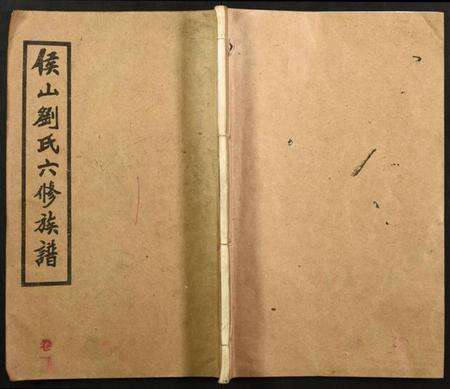 侯山劉氏六修族譜
卷